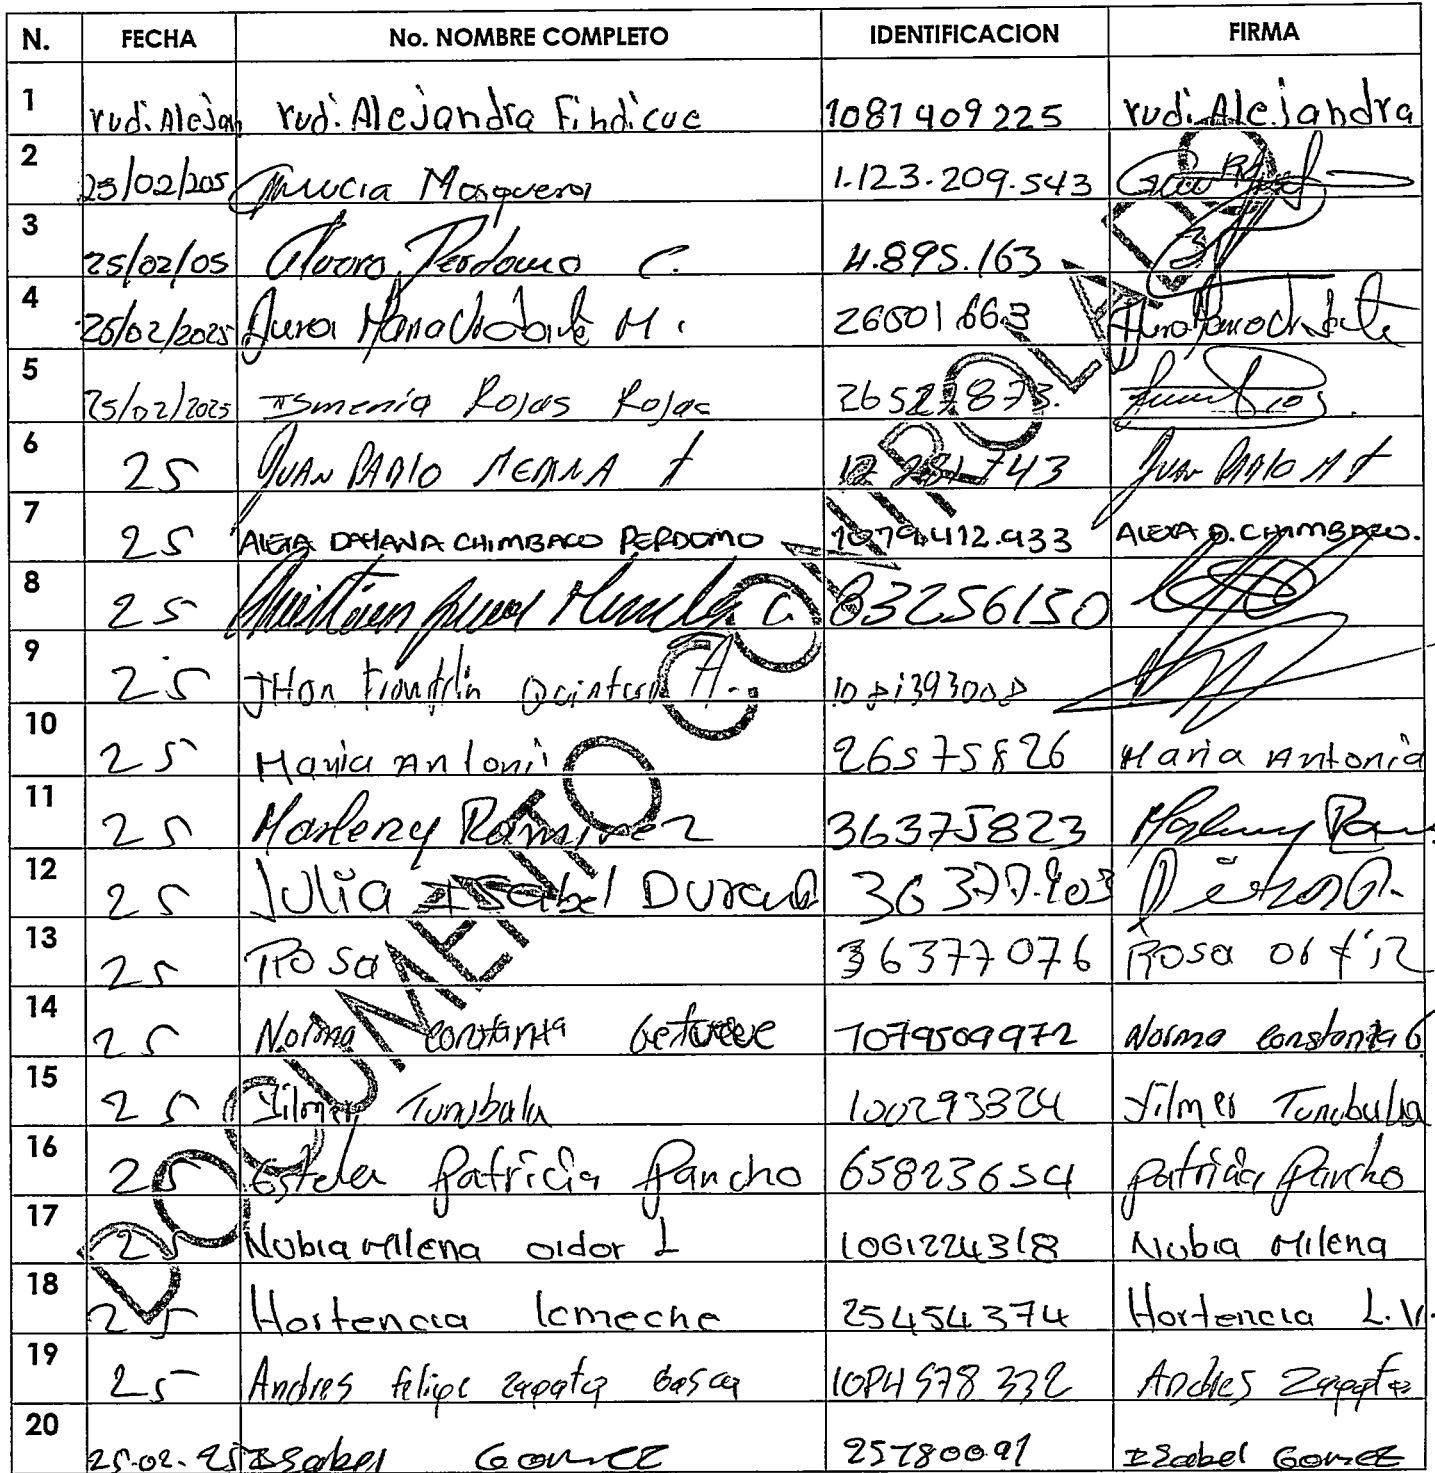 N. FECHA No. NOMBRE COMPLETO IDENTIFICACION FIRMA
1 rudi. Alejan rudi. Alejandra Findicue 1081409225 rudi. Alejandra
2 25/02/205 Mosquera 1.123.209.543
3 25/02/05 Alvaro Perdomo C. 4.895.163
4 25/02/2025 Aura Maria Chabarte M. 26601663
5 25/02/2025 Ismenia Rojas Rojas 26527873.
6 25 JUAN PABLO MEDINA T JUAN PABLO M T
7 25 ALEXA DAHANA CHIMBACO PERDOMO 1079.412.933 ALEXA D. CHIMBACO.
8 25 C. 83256150
9 25 JHon Franklin Quintero A. 1081393008
10 25 Maria Antoni 26575826 Maria Antonia
11 25 Marleny Ramirez 36375823 Marleny Ram
12 25 Julia Isabel Duran 36377.903
13 25 Rosa 36377076 Rosa Ortiz
14 25 Norma constanza 1079509972 Norma constanza G
15 25 Yilmer Tunubala 100293324 Yilmer Tunubala
16 25 Estela Patricia Pancho 65823654 Patricia Pancho
17 25 Nubia Milena oidor L 1061224318 Nubia Milena
18 25 Hortencia lemeche 25454374 Hortencia L.V.
19 25 Andres felipe zapata 1084578332 Andres Zapata
20 25-02-25 Isabel Gomez 25780091 Isabel Gomez
DOCUMENTO CONTROLADO